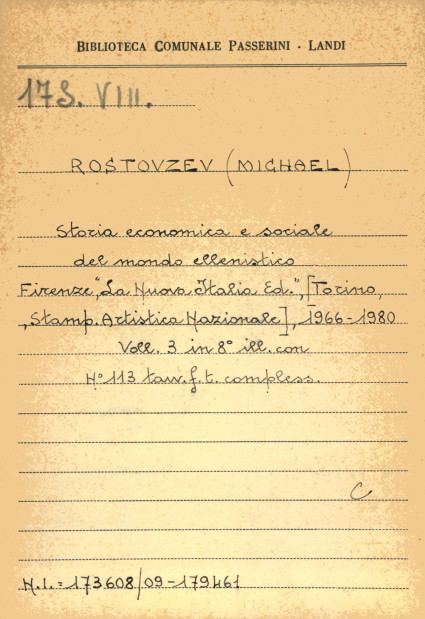 BIBLIOTECA COMUNALE PASSERINI - LANDI
17S. VIII.
ROSTOVZEV (MICHAEL)
Storia economica e sociale
del mondo ellenistico
Firenze, "La Nuova Italia Ed.", [Torino,
Stamp. Artistica Nazionale], 1966-1980
Voll. 3 in 8° ill. con
N° 113 tavv. f. t. compless.
C
N.I.=173608/09-179461